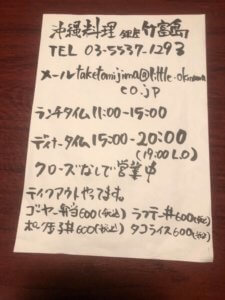 沖縄料理 銀座 竹富島
TEL 03-5537-1293
メールtaketomijima@little-okinawa
co.jp
ランチタイム11:00-15:00
ディナータイム15:00-20:00
(19:00 LO)
クローズなしで営業中
テイクアウトやってます。
ゴーヤー弁当600(税込) ラフテー丼600(税込)
ポーク玉子丼600(税込) タコライス600(税込)